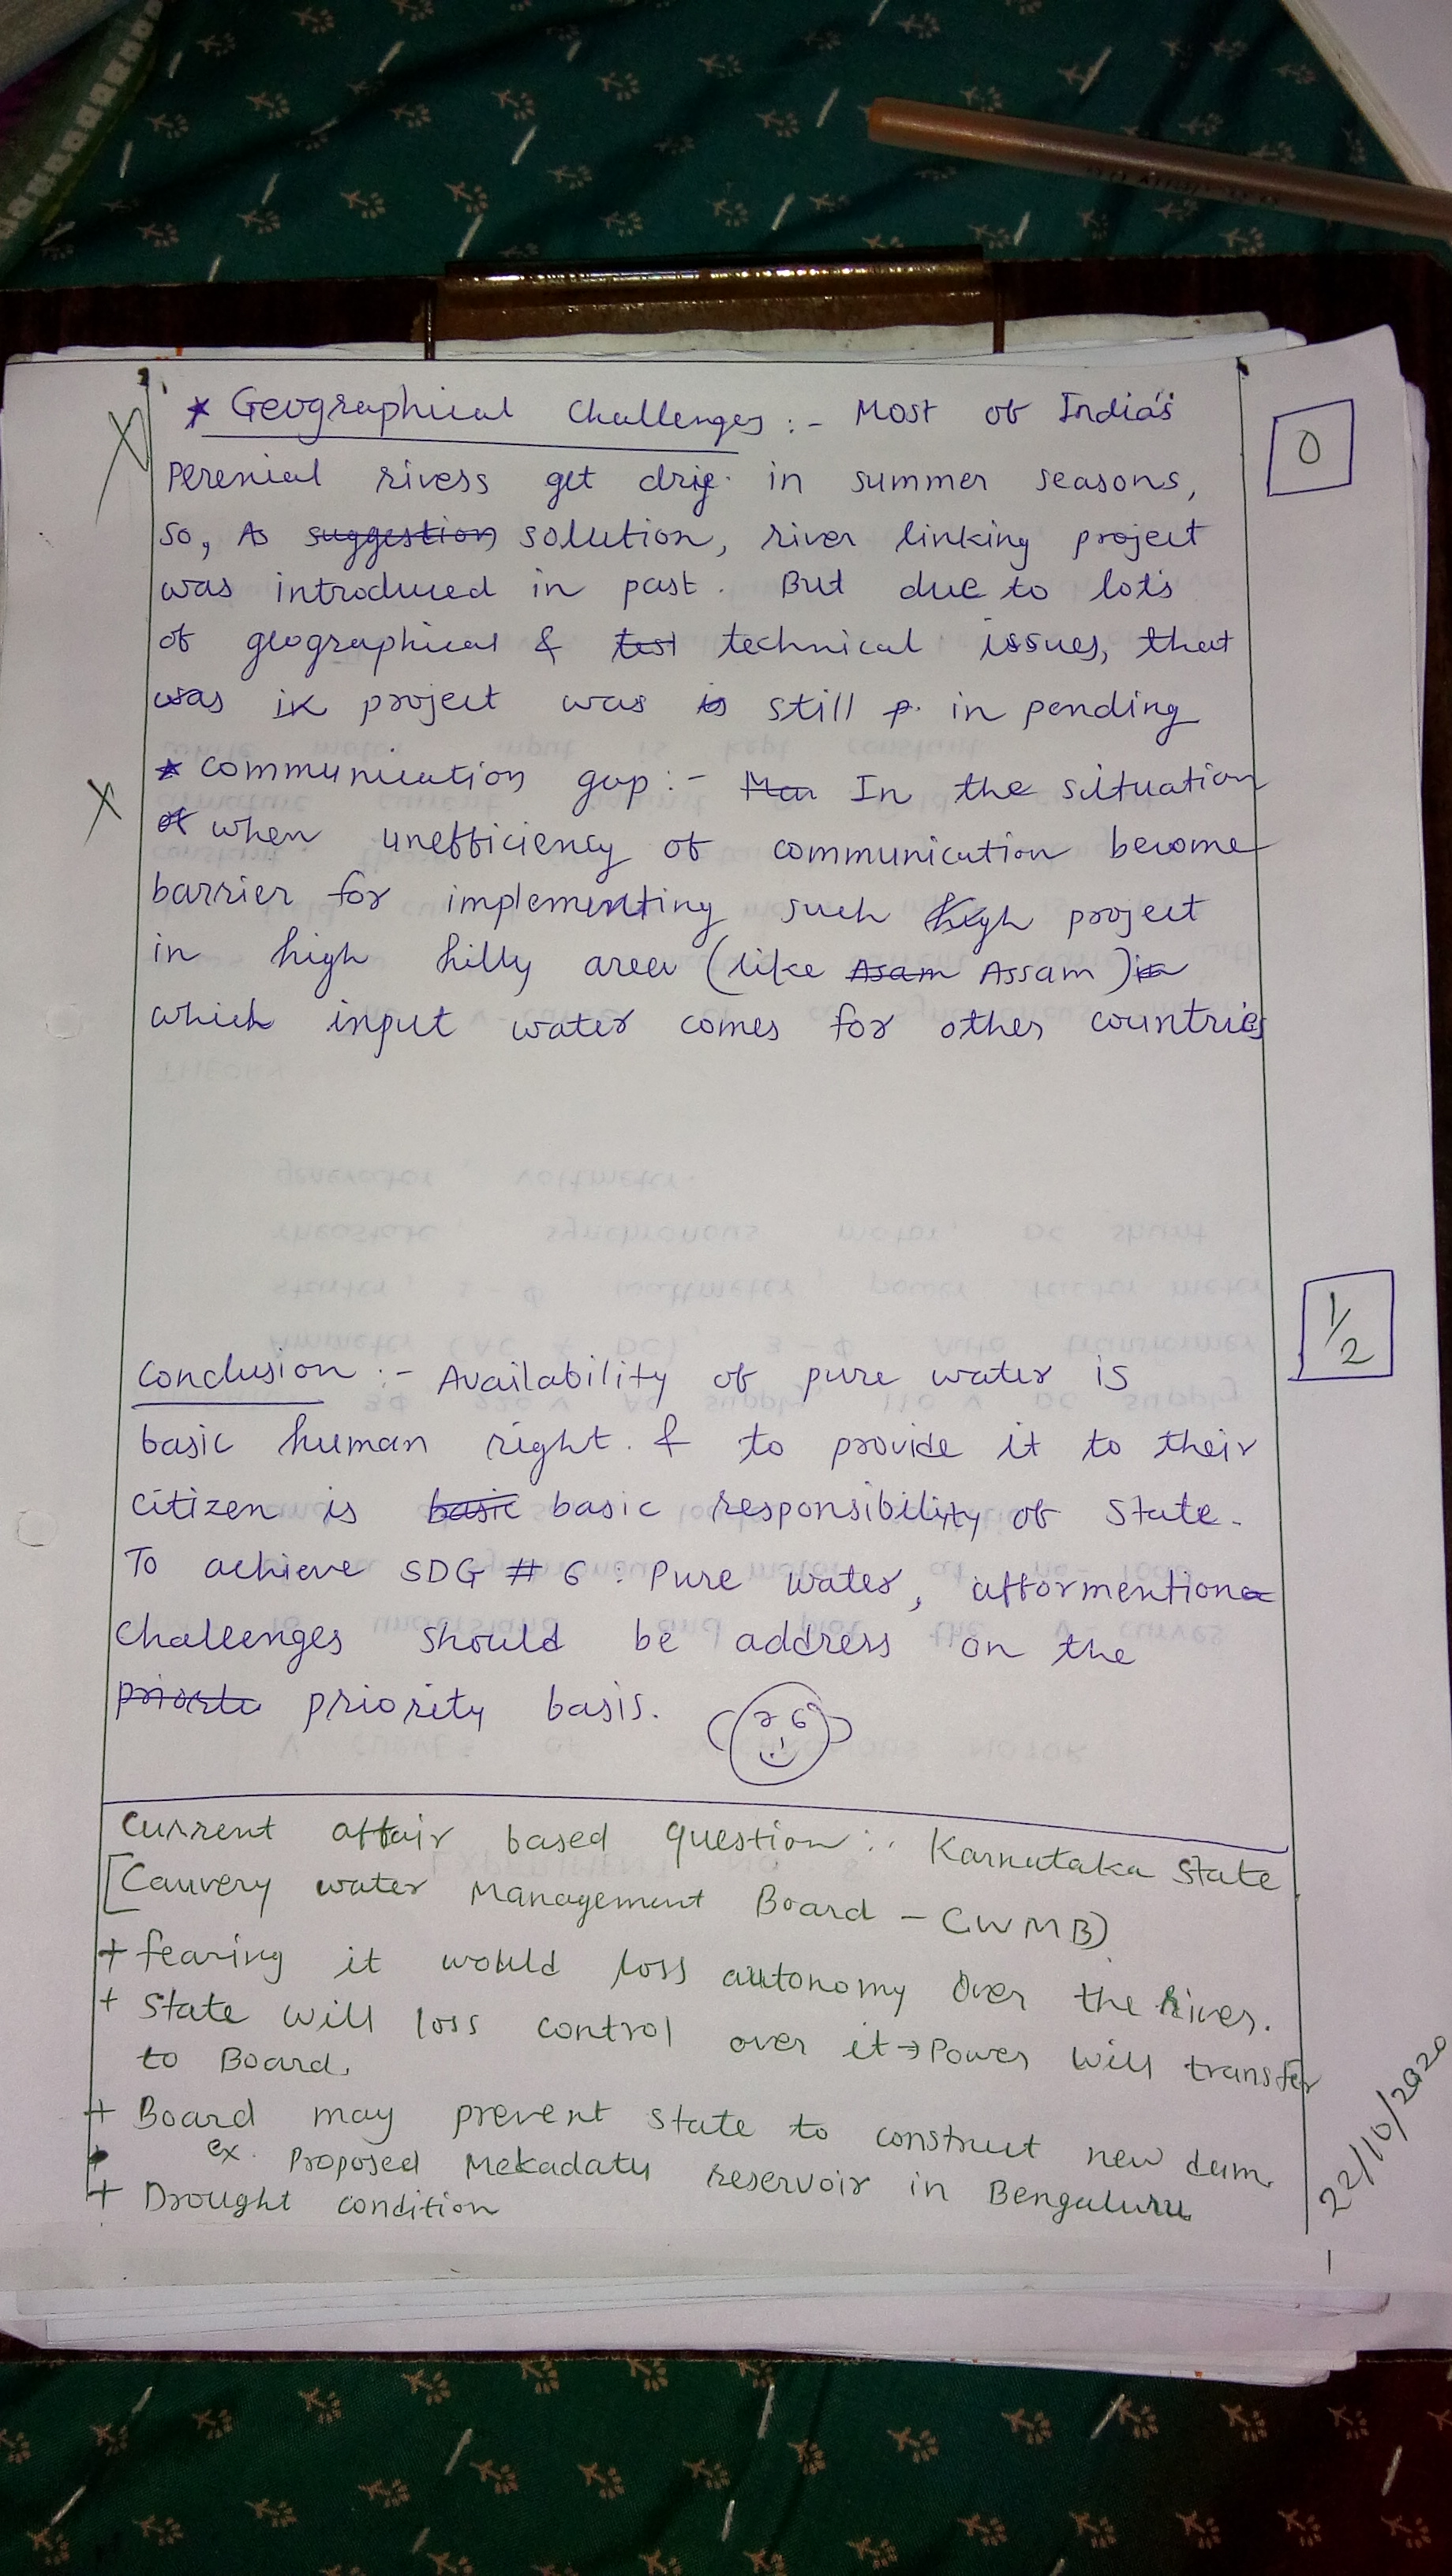 * Geographical Challenges :- Most of India's
Perenial rivers get drie in summer seasons,
So, As suggestion solution, river linking project
was introduced in past. But due to lots
of geographical & test technical issues, that
was project was is still p. in pending
* Communication gap :- In the situation
of when unefficiency of communication become
barrier for implementing such high project
in high hilly area (like Asam Assam)
which input water comes for other countries
Conclusion :- Availability of pure water is
basic human right. & to provide it to their
citizen is basic basic responsibility of State.
To achieve SDG # 6 : Pure water, afformentione
challenges should be address on the
priority basis.
Current affair based question :. Karnataka State
[Cauvery water Management Board - CWMB)
+ fearing it would loss autonomy over the River.
+ State will loss control over it → Power will transfer
to Board.
+ Board may prevent state to construct new dam
ex. Proposed Mekadatu reservoir in Bengaluru
+ Drought condition
0
1/2
22/10/2020